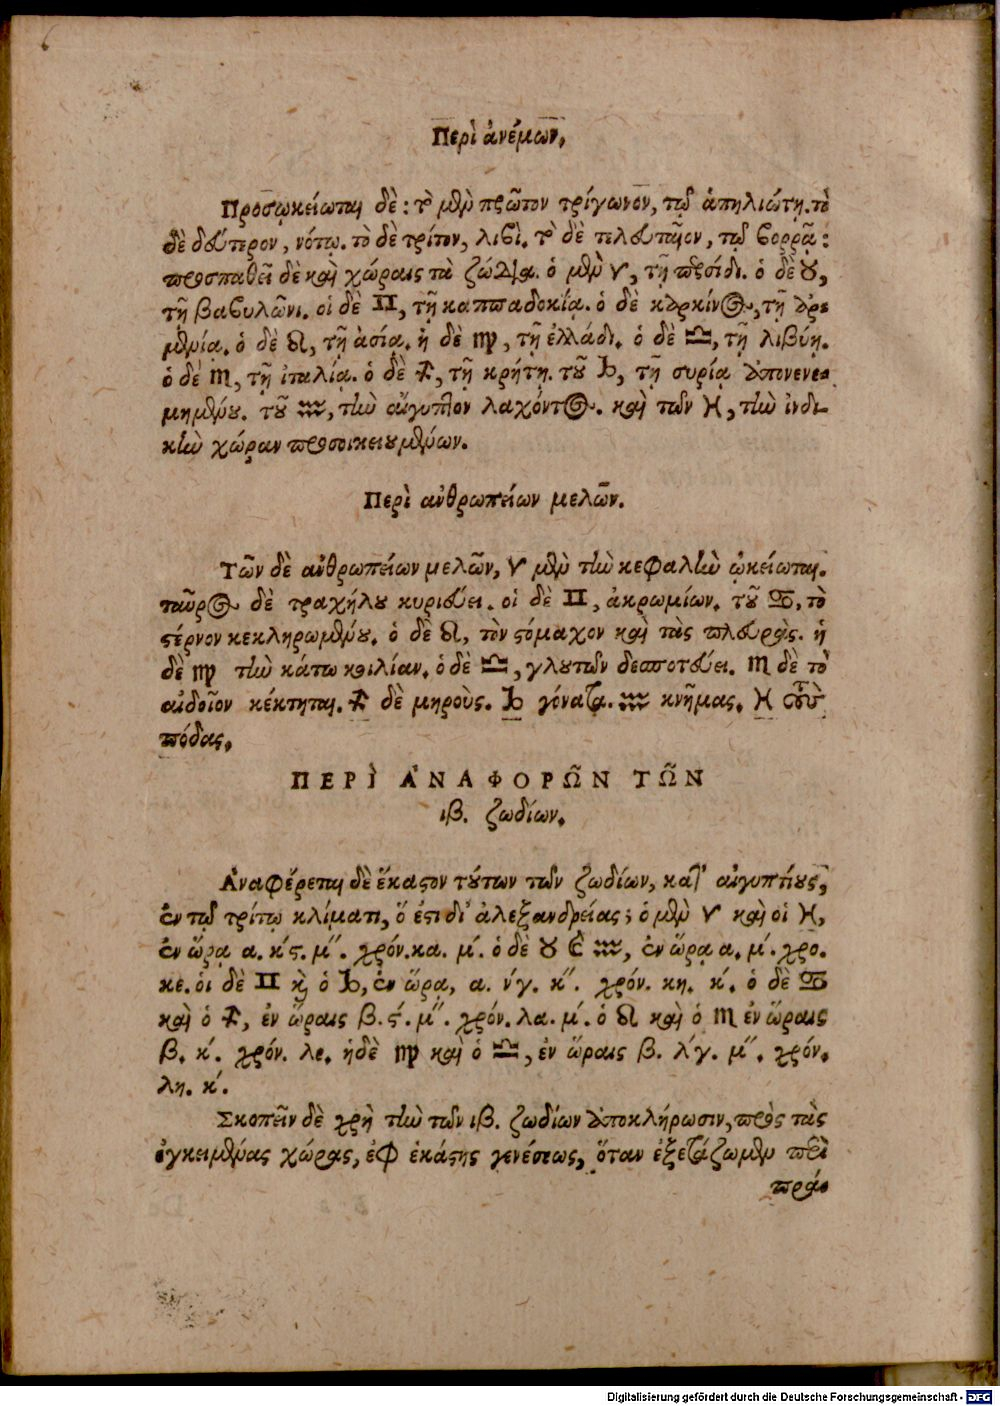 Περὶ ἀνέμων.
Προσῳκείωται δὲ : τὸ μὲν πρῶτον τρίγωνον, τῷ ἀπηλιώτῃ. τὸ
δὲ δεύτερον, νότῳ. τὸ δὲ τρίτον, λιβὶ. τὸ δὲ τελευταῖον, τῷ βορρᾷ :
προσπαθεῖ δὲ καὶ χώραις τὰ ζώδια. ὁ μὲν ♈, τῇ περσίδι. ὁ δὲ ♉,
τῇ βαβυλῶνι. οἱ δὲ ♊, τῇ καππαδοκίᾳ. ὁ δὲ καρκίνος, τῇ ἀρ-
μενίᾳ. ὁ δὲ ♌, τῇ ἀσίᾳ. ἡ δὲ ♍, τῇ ἑλλάδι. ὁ δὲ ♎, τῇ λιβύῃ.
ὁ δὲ ♏, τῇ ἰταλίᾳ. ὁ δὲ ♐, τῇ κρήτῃ. τοῦ ♑, τῇ συρίᾳ ἀπονενε-
μημένου. τοῦ ♒, τὴν αἴγυπτον λαχόντος. καὶ τῶν ♓, τὴν ἰνδι-
κὴν χώραν προσοικειουμένων.
Περὶ ἀνθρωπείων μελῶν.
Τῶν δὲ ἀνθρωπείων μελῶν, ♈ μὲν τὴν κεφαλὴν ᾠκείωται.
ταῦρος δὲ τραχήλου κυριεύει. οἱ δὲ ♊, ἀκρωμίων. τοῦ ♋, τὸ
στέρνον κεκληρωμένου. ὁ δὲ ♌, τὸν στόμαχον καὶ τὰς πλευρὰς. ἡ
δὲ ♍ τὴν κάτω κοιλίαν. ὁ δὲ ♎, γλουτῶν δεσποτεύει. ♏ δὲ τὸ
αἰδοῖον κέκτηται. ♐ δὲ μηροὺς. ♑ γόνατα. ♒ κνήμας. ♓ τοὺς
πόδας.
ΠΕΡῚ ἈΝΑΦΟΡΩ͂Ν ΤΩ͂Ν
ιβ. ζωδίων.
Ἀναφέρεται δὲ ἕκαστον τούτων τῶν ζωδίων, κατ' αἰγυπτίους,
ἐν τῷ τρίτῳ κλίματι, ὅ ἐστι δι' ἀλεξανδρείας ; ὁ μὲν ♈ καὶ οἱ ♓,
ἐν ὥρᾳ α. κ´ς. μ´´. χρόν. κα. μ´. ὁ δὲ ♉ καὶ ♒, ἐν ὥρᾳ α. μ´. χρο.
κε. οἱ δὲ ♊ καὶ ὁ ♑, ἐν ὥρᾳ, α. ν´γ. κ´´. χρόν. κη. κ´. ὁ δὲ ♋
καὶ ὁ ♐, ἐν ὥραις β. ς´. μ´´. χρόν. λα. μ´. ὁ ♌ καὶ ὁ ♏ ἐν ὥραις
β. κ´. χρόν. λε. ἡ δὲ ♍ καὶ ὁ ♎, ἐν ὥραις β. λ´γ. μ´´. χρόν.
λη. κ´.
Σκοπεῖν δὲ χρὴ τὴν τῶν ιβ. ζωδίων ἀποκλήρωσιν, πρὸς τὰς
ἐγκειμένας χώρας, ἐφ ἑκάστης γενέσεως, ὅταν ἐξετάζωμεν περὶ
πρά-
Digitalisierung gefördert durch die Deutsche Forschungsgemeinschaft - DFG